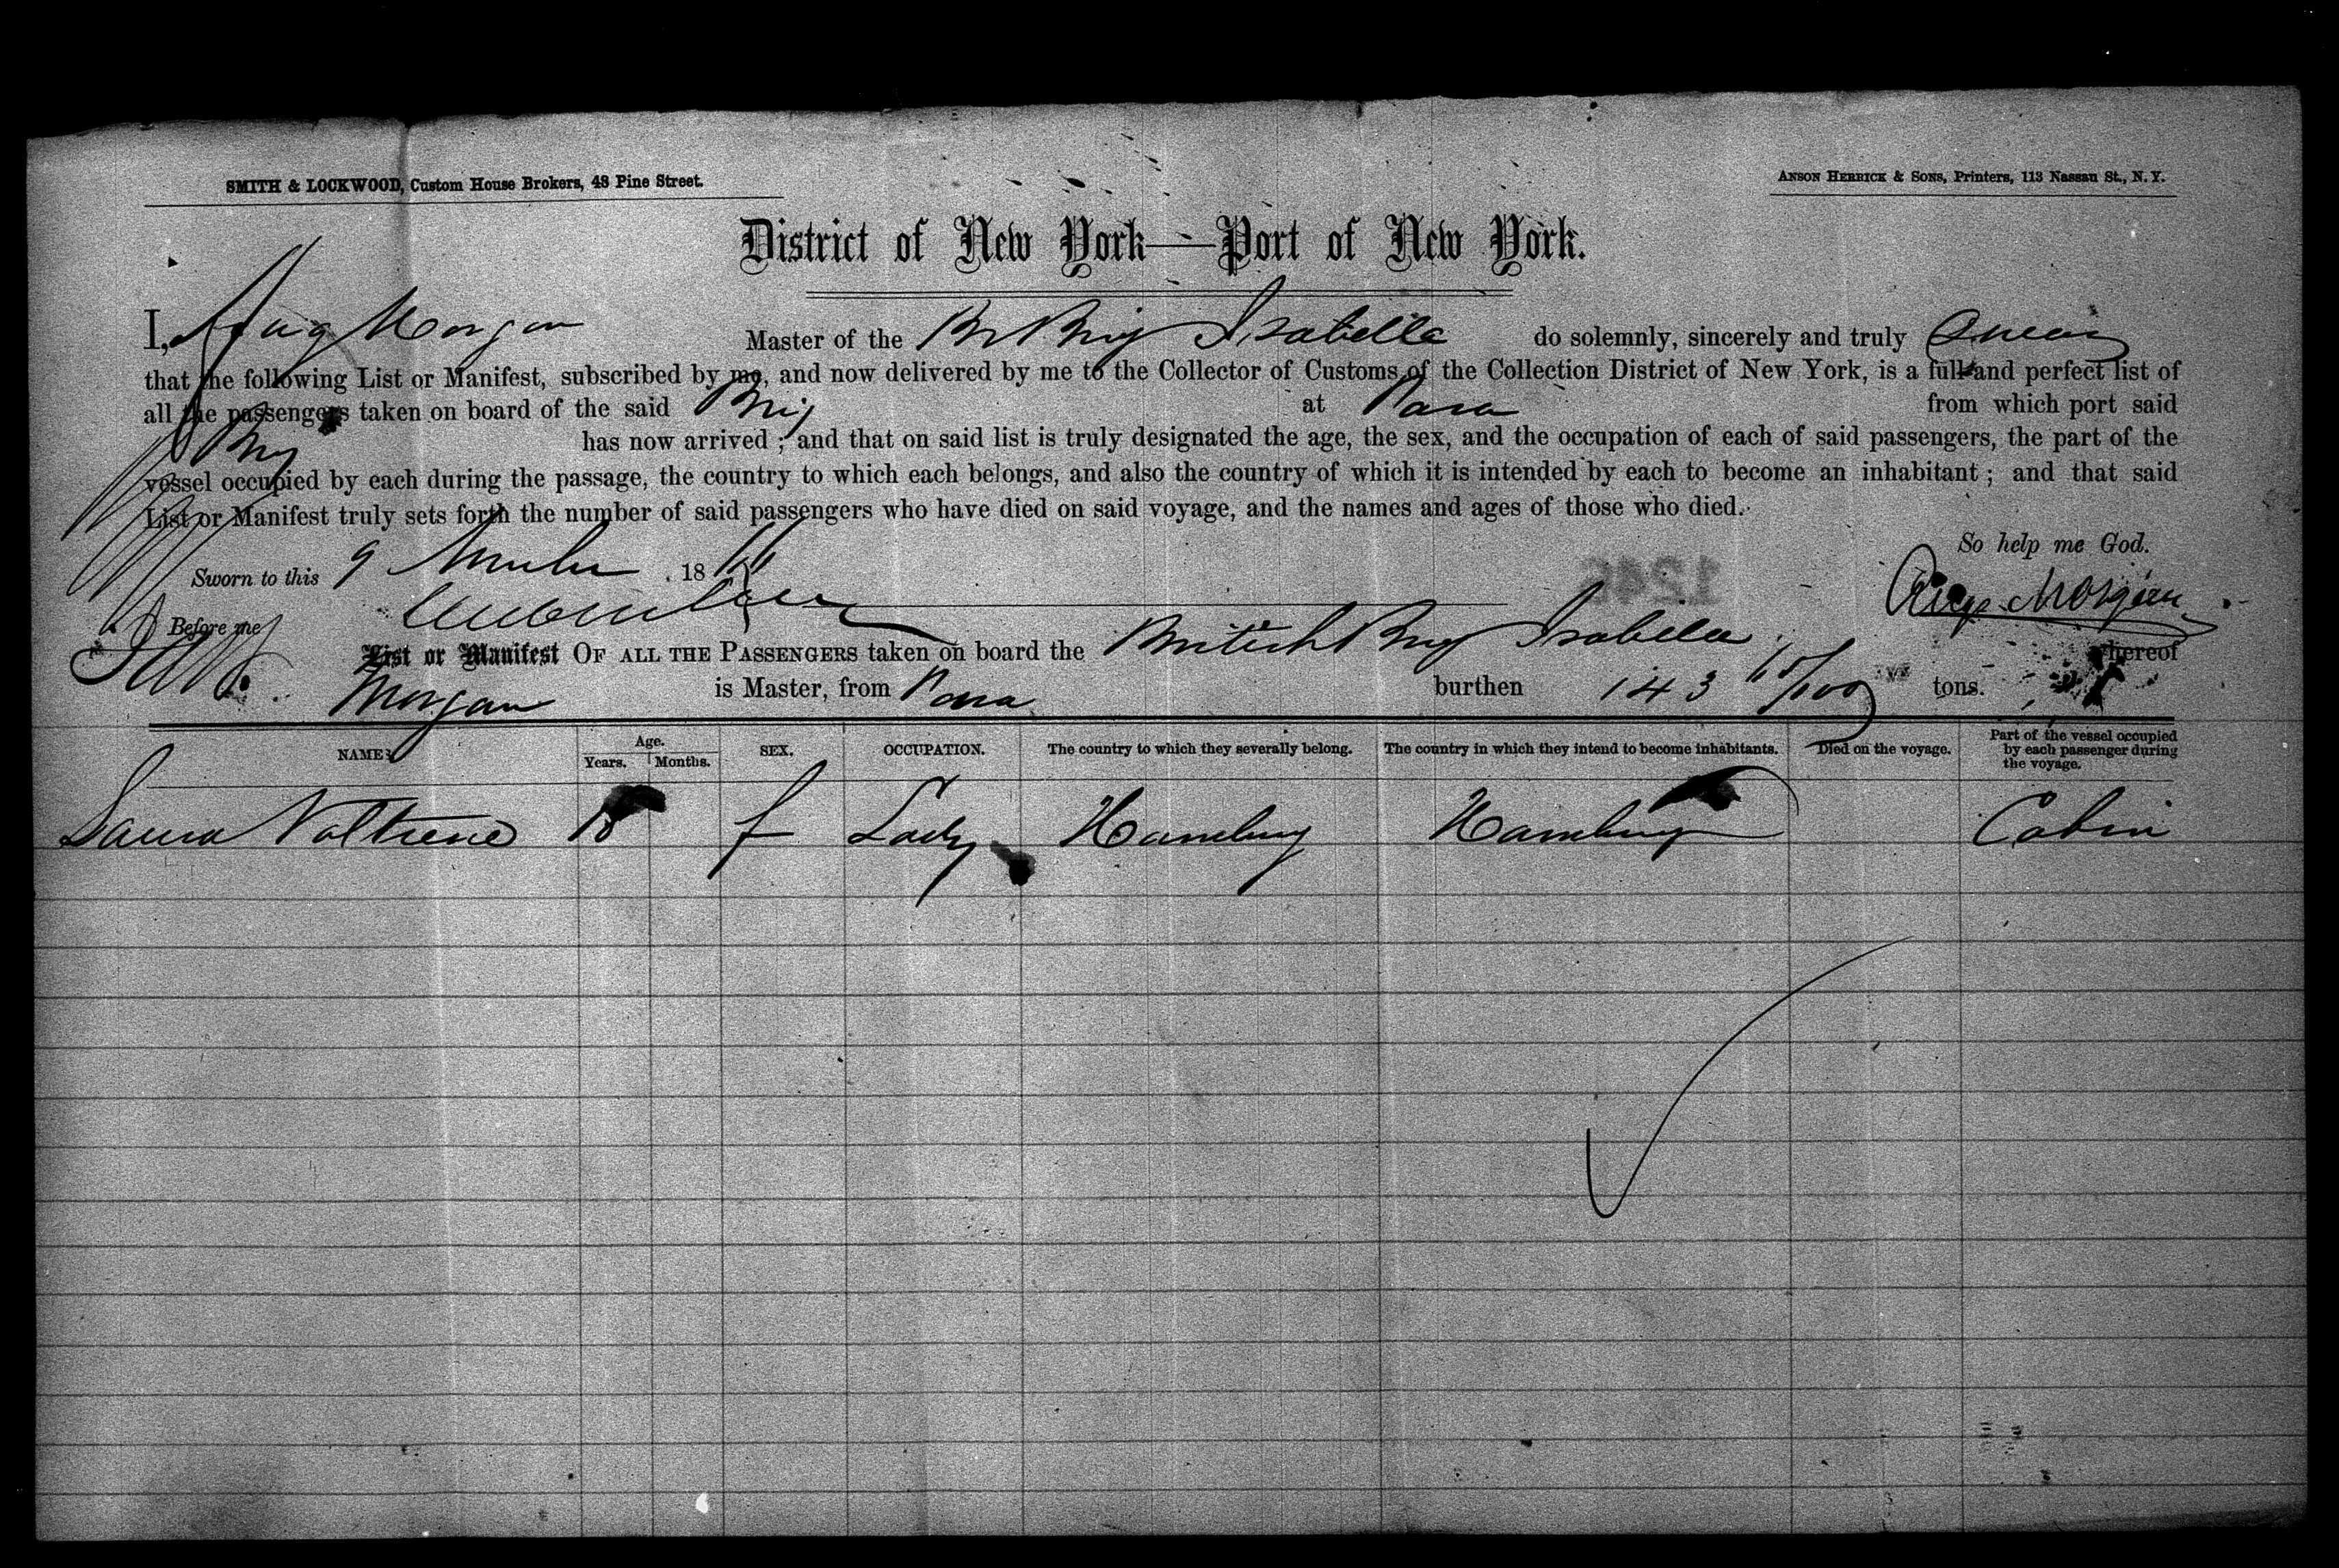 SMITH & LOCKWOOD, Custom House Brokers, 48 Pine Street.
ANSON HERRICK & SONS, Printers, 113 Nassau St., N. Y.
District of New York—Port of New York.
I, Aug Morgan Master of the Br Brig Isabella do solemnly, sincerely and truly Swear
that the following List or Manifest, subscribed by me, and now delivered by me to the Collector of Customs of the Collection District of New York, is a full and perfect list of
all the passengers taken on board of the said Brig at Para from which port said
Brig has now arrived ; and that on said list is truly designated the age, the sex, and the occupation of each of said passengers, the part of the
vessel occupied by each during the passage, the country to which each belongs, and also the country of which it is intended by each to become an inhabitant ; and that said
List or Manifest truly sets forth the number of said passengers who have died on said voyage, and the names and ages of those who died.
So help me God.
Sworn to this 9 18 66
Morgan
Before me
List or Manifest OF ALL THE PASSENGERS taken on board the British Brig Isabella whereof
Morgan is Master, from Para burthen 143 tons.
NAME. Age. Years. Months. SEX. OCCUPATION. The country to which they severally belong. The country in which they intend to become inhabitants. Died on the voyage. Part of the vessel occupied by each passenger during the voyage.
Laura 18 f Lady Hamburg Hamburg Cabin